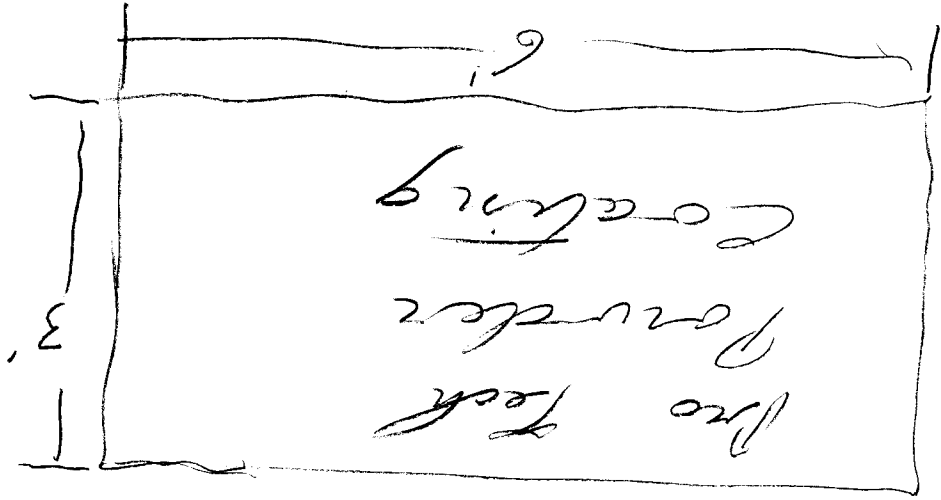 Pro Tech
Powder
Coating
3'
6'